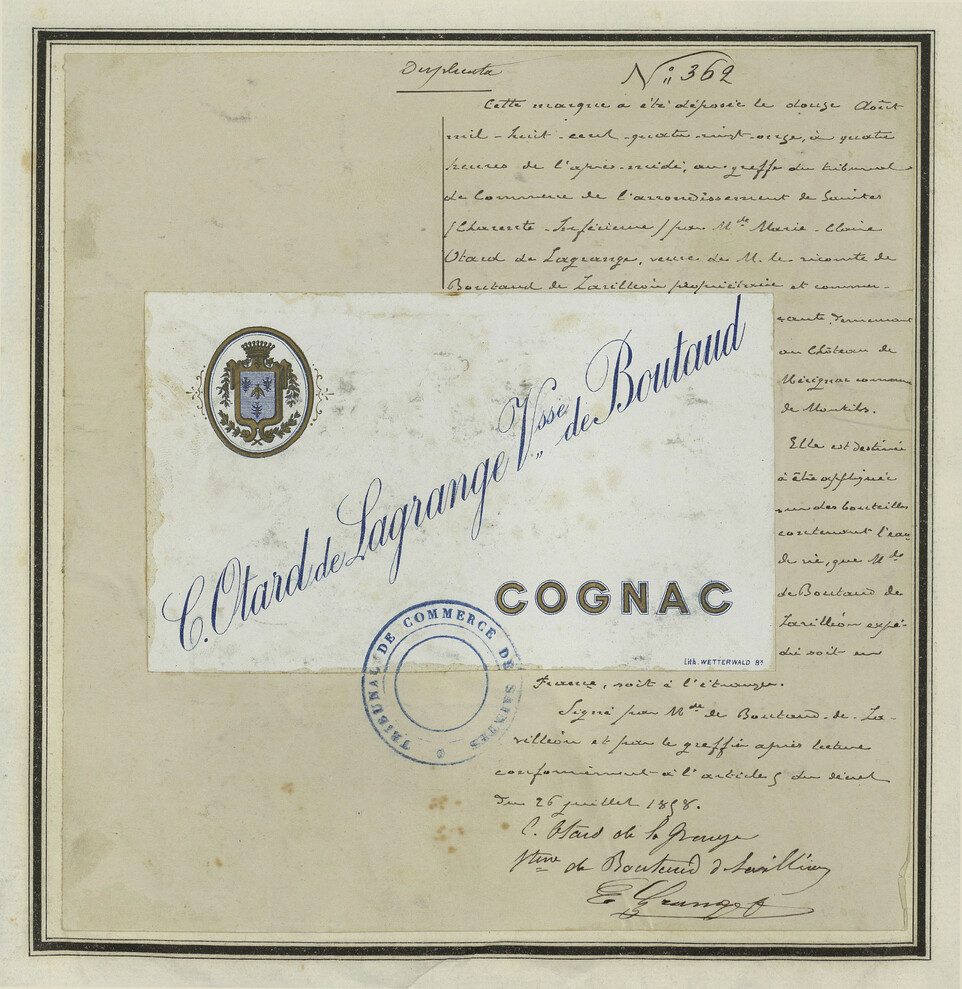 Duplicata
N° 362
Cette marque a été déposée le douze Août
mil-huit-cent-quatre-vingt-onze, à quatre
heures de l'après-midi, au greffe du tribunal
de Commerce de l'arrondissement de Saintes
(Charente-Inférieure) par Mde Marie-Claire
Otard de Lagrange, veuve de M. le vicomte de
Boutaud de Lavilléon propriétaire et commer-
çante, demeurant
au Château de
Mérignac commune
de Montils.
Elle est destinée
à être appliquée
sur des bouteilles
contenant l'eau
de vie, que Mde
de Boutaud de
Lavilléon expé-
die soit en
France, soit à l'étranger.
Signé par Mde de Boutaud-de-La-
villéon et par le greffier après lecture
conformément à l'article 5 du décret
du 26 juillet 1858.
C. Otard de la Grange
Vtesse de Boutaud de Lavilléon
E Grange
C. Otard de Lagrange Vsse de Boutaud
COGNAC
Lith. WETTERWALD Bx
TRIBUNAL DE COMMERCE DE SAINTES